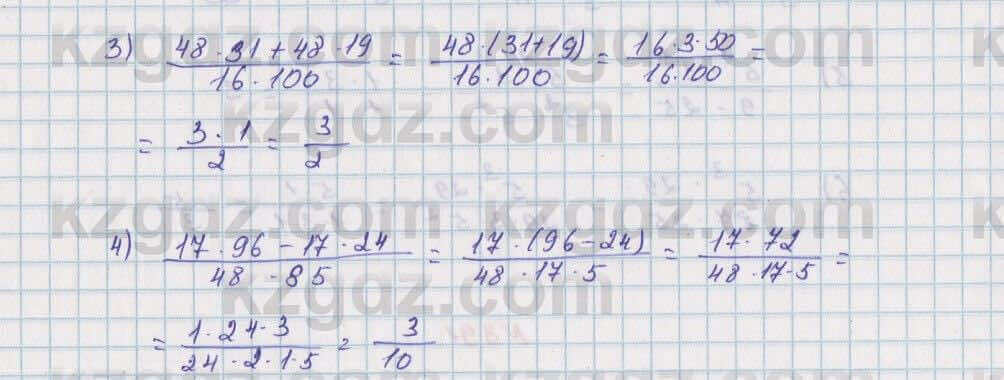 3) (48 · 31 + 48 · 19)/(16 · 100) = (48 · (31+19))/(16 · 100) = (16 · 3 · 50)/(16 · 100) =
= (3 · 1)/2 = 3/2
4) (17 · 96 − 17 · 24)/(48 · 85) = (17 · (96 − 24))/(48 · 17 · 5) = (17 · 72)/(48 · 17 · 5) =
= (1 · 24 · 3)/(24 · 2 · 1 · 5) = 3/10
kzgdz.com
kzgdz.com
kzgdz.com
kzgdz.com
kzgdz.com
kzgdz.com